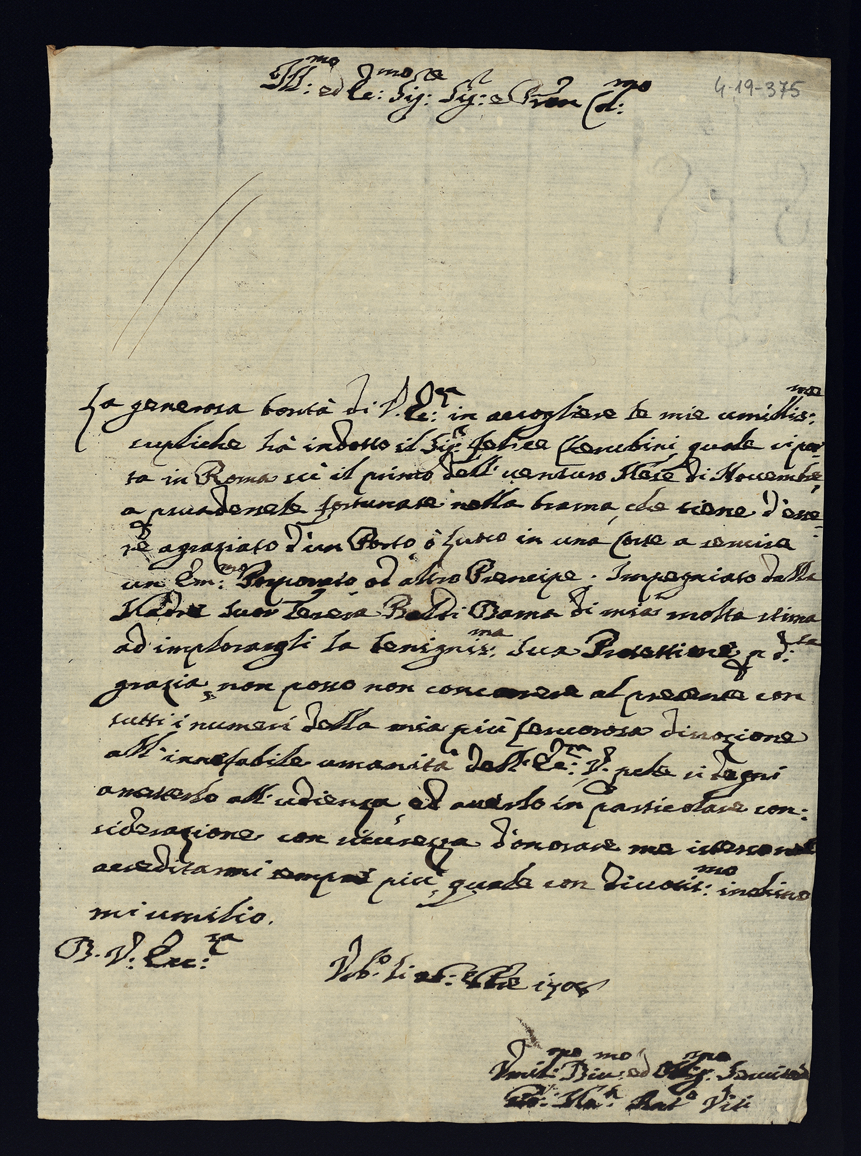 Ill:mo ed Ec:mo Sig:re Sig:r e Pron Col:mo
4-19-375
La generosa bontà di V. Ec:za in accogliere le mie umilis:me
supliche hà indotto il Sig:r Felice Cherubini, quale si por:
ta in Roma sù il primo dell'venturo Mese di Novembre,
a prevalersele fortunate nella brama, che tiene d'esse:
re agraziato d'un Posto ò luoco in una Corte a servire
un Em:mo Porporato od altro Prencipe. Impegniato dalla
Madre Suor Teresa Baldi Dama di mia molta stima
ad implorargli la benignis:ma Sua Protettione p d:ta
grazia, non posso non concorrere al presente con
tutti i numeri della mia più fervorosa divozione
all'innefabile umanità dell'Ec:za V:ra pche si degni
ametterlo all'udienza ed averlo in particolare con:
siderazione con sicurezza d'onorare me istesso ed
acreditarmi sempre più, quale con divotis:mo inchino
mi umilio.
D. V: Ecc:za
Urb:o li 1708
Umil:mo Div:mo ed Oblig:mo Servitore
Ant:o Viti